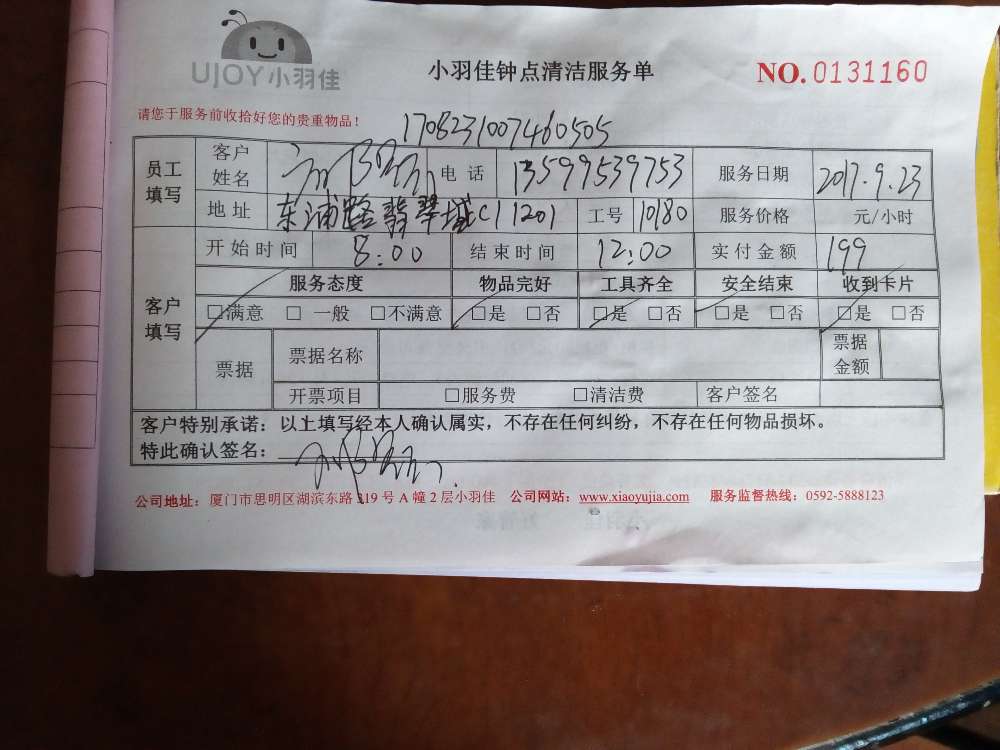 UJOY小羽佳
小羽佳钟点清洁服务单
NO.0131160
请您于服务前收拾好您的贵重物品！
1708231007460505
员工填写 客户姓名 电话 13599539753 服务日期 2017.9.23
地址 东浦路翡翠城C1 1201 工号 10180 服务价格 元/小时
客户填写 开始时间 8:00 结束时间 12:00 实付金额 199
服务态度 物品完好 工具齐全 安全结束 收到卡片
□满意 □一般 □不满意 □是 □否 □是 □否 □是 □否 □是 □否
票据 票据名称 票据金额
开票项目 □服务费 □清洁费 客户签名
客户特别承诺：以上填写经本人确认属实，不存在任何纠纷，不存在任何物品损坏。
特此确认签名：
公司地址：厦门市思明区湖滨东路319号A幢2层小羽佳 公司网站：www.xiaoyujia.com 服务监督热线：0592-5888123